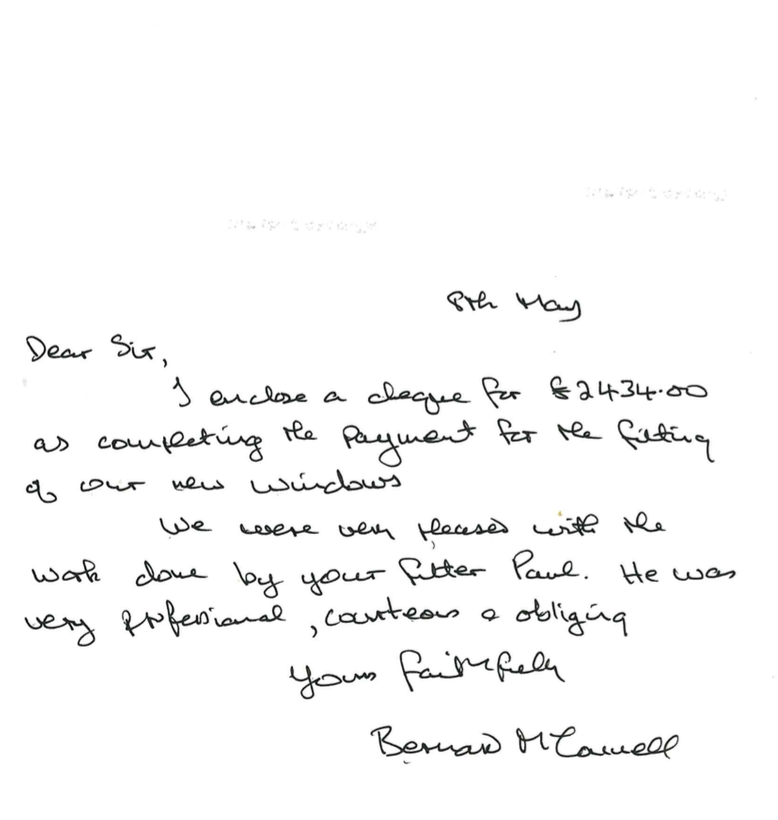 8th May
Dear Sir,
I enclose a cheque for £2434.00
as completing the Payment for the fitting
of our new windows
We were very pleased with the
work done by your fitter Paul. He was
very professional, courteous & obliging
Yours faithfully
Bernard McConnell